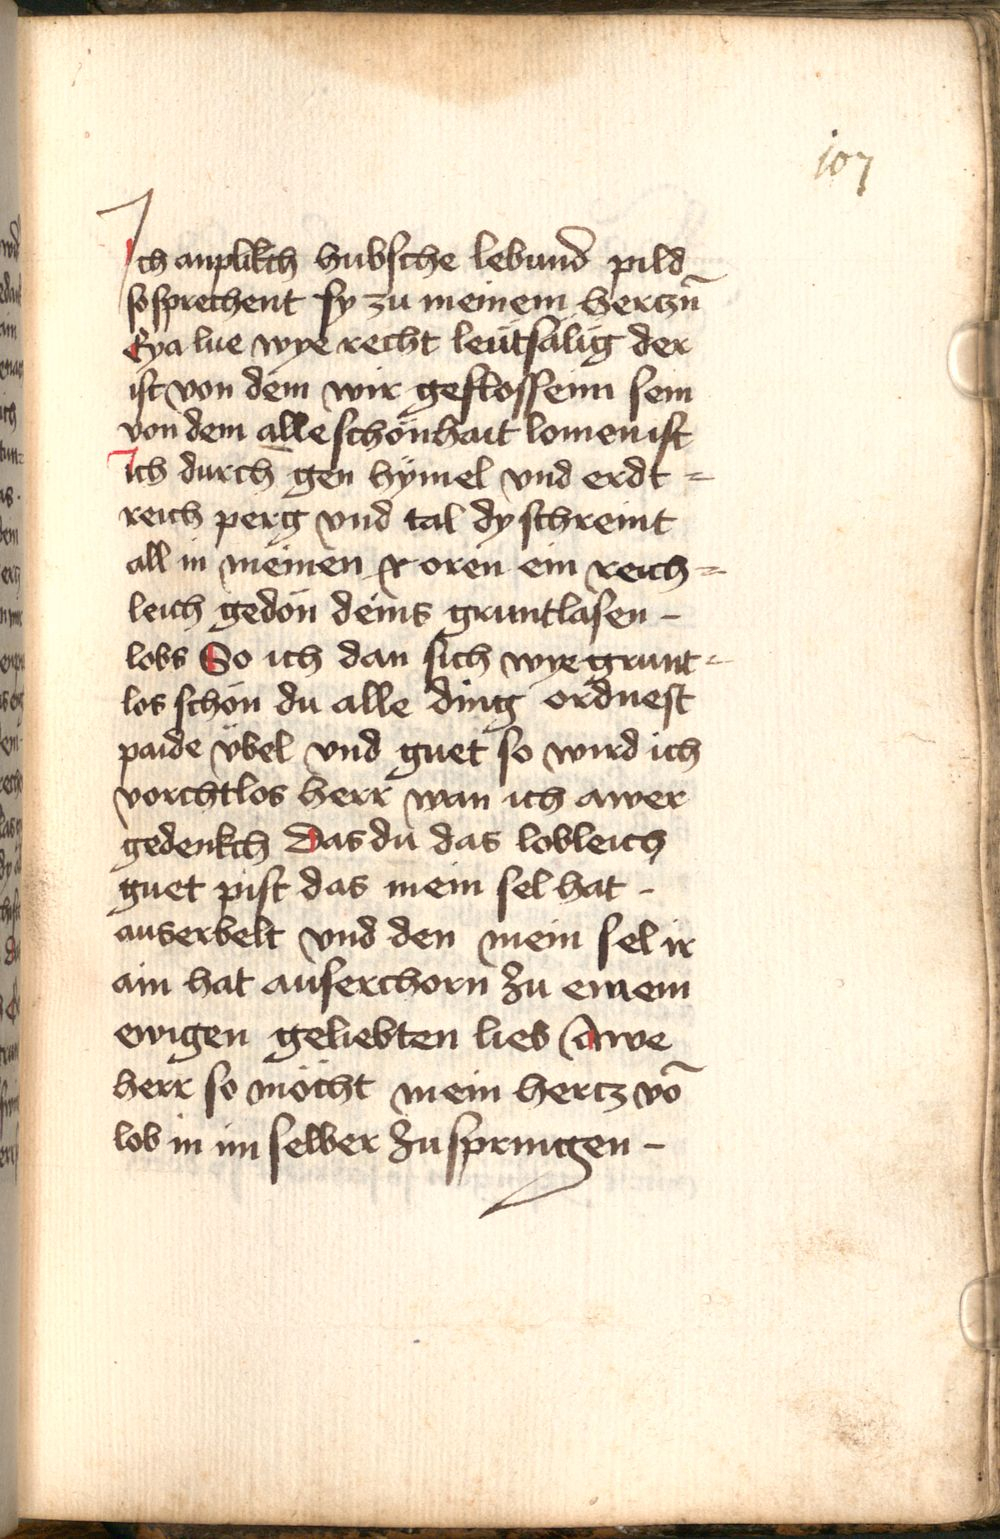 107
Ich anplikch hubsche lebund pild
so sprechent sy zu meinem herczn̄
Eya lue wye recht leütsälig der
ist von dem wir geflossenn sein
von dem alle schönhait komen ist
ich durch gen hÿmel vnd erdt =
reich perg vnd tal dy schreint
all in meinen oren ein reich =
leich gedön deins gruntlasen -
lobs So ich dan sich wye grunt =
los schön du alle ding ordnest
paide vbel vnd guet so wird ich
vorchtlos herr wan ich awer
gedenkch Das du das lobleich
guet pist das mein sel hat -
auserbelt vnd den mein sel ir
ain hat auserchorn zu einem
ewigen geliebten lieb Awe
herr so möcht mein hercz vō
lob in im selber zu springen -